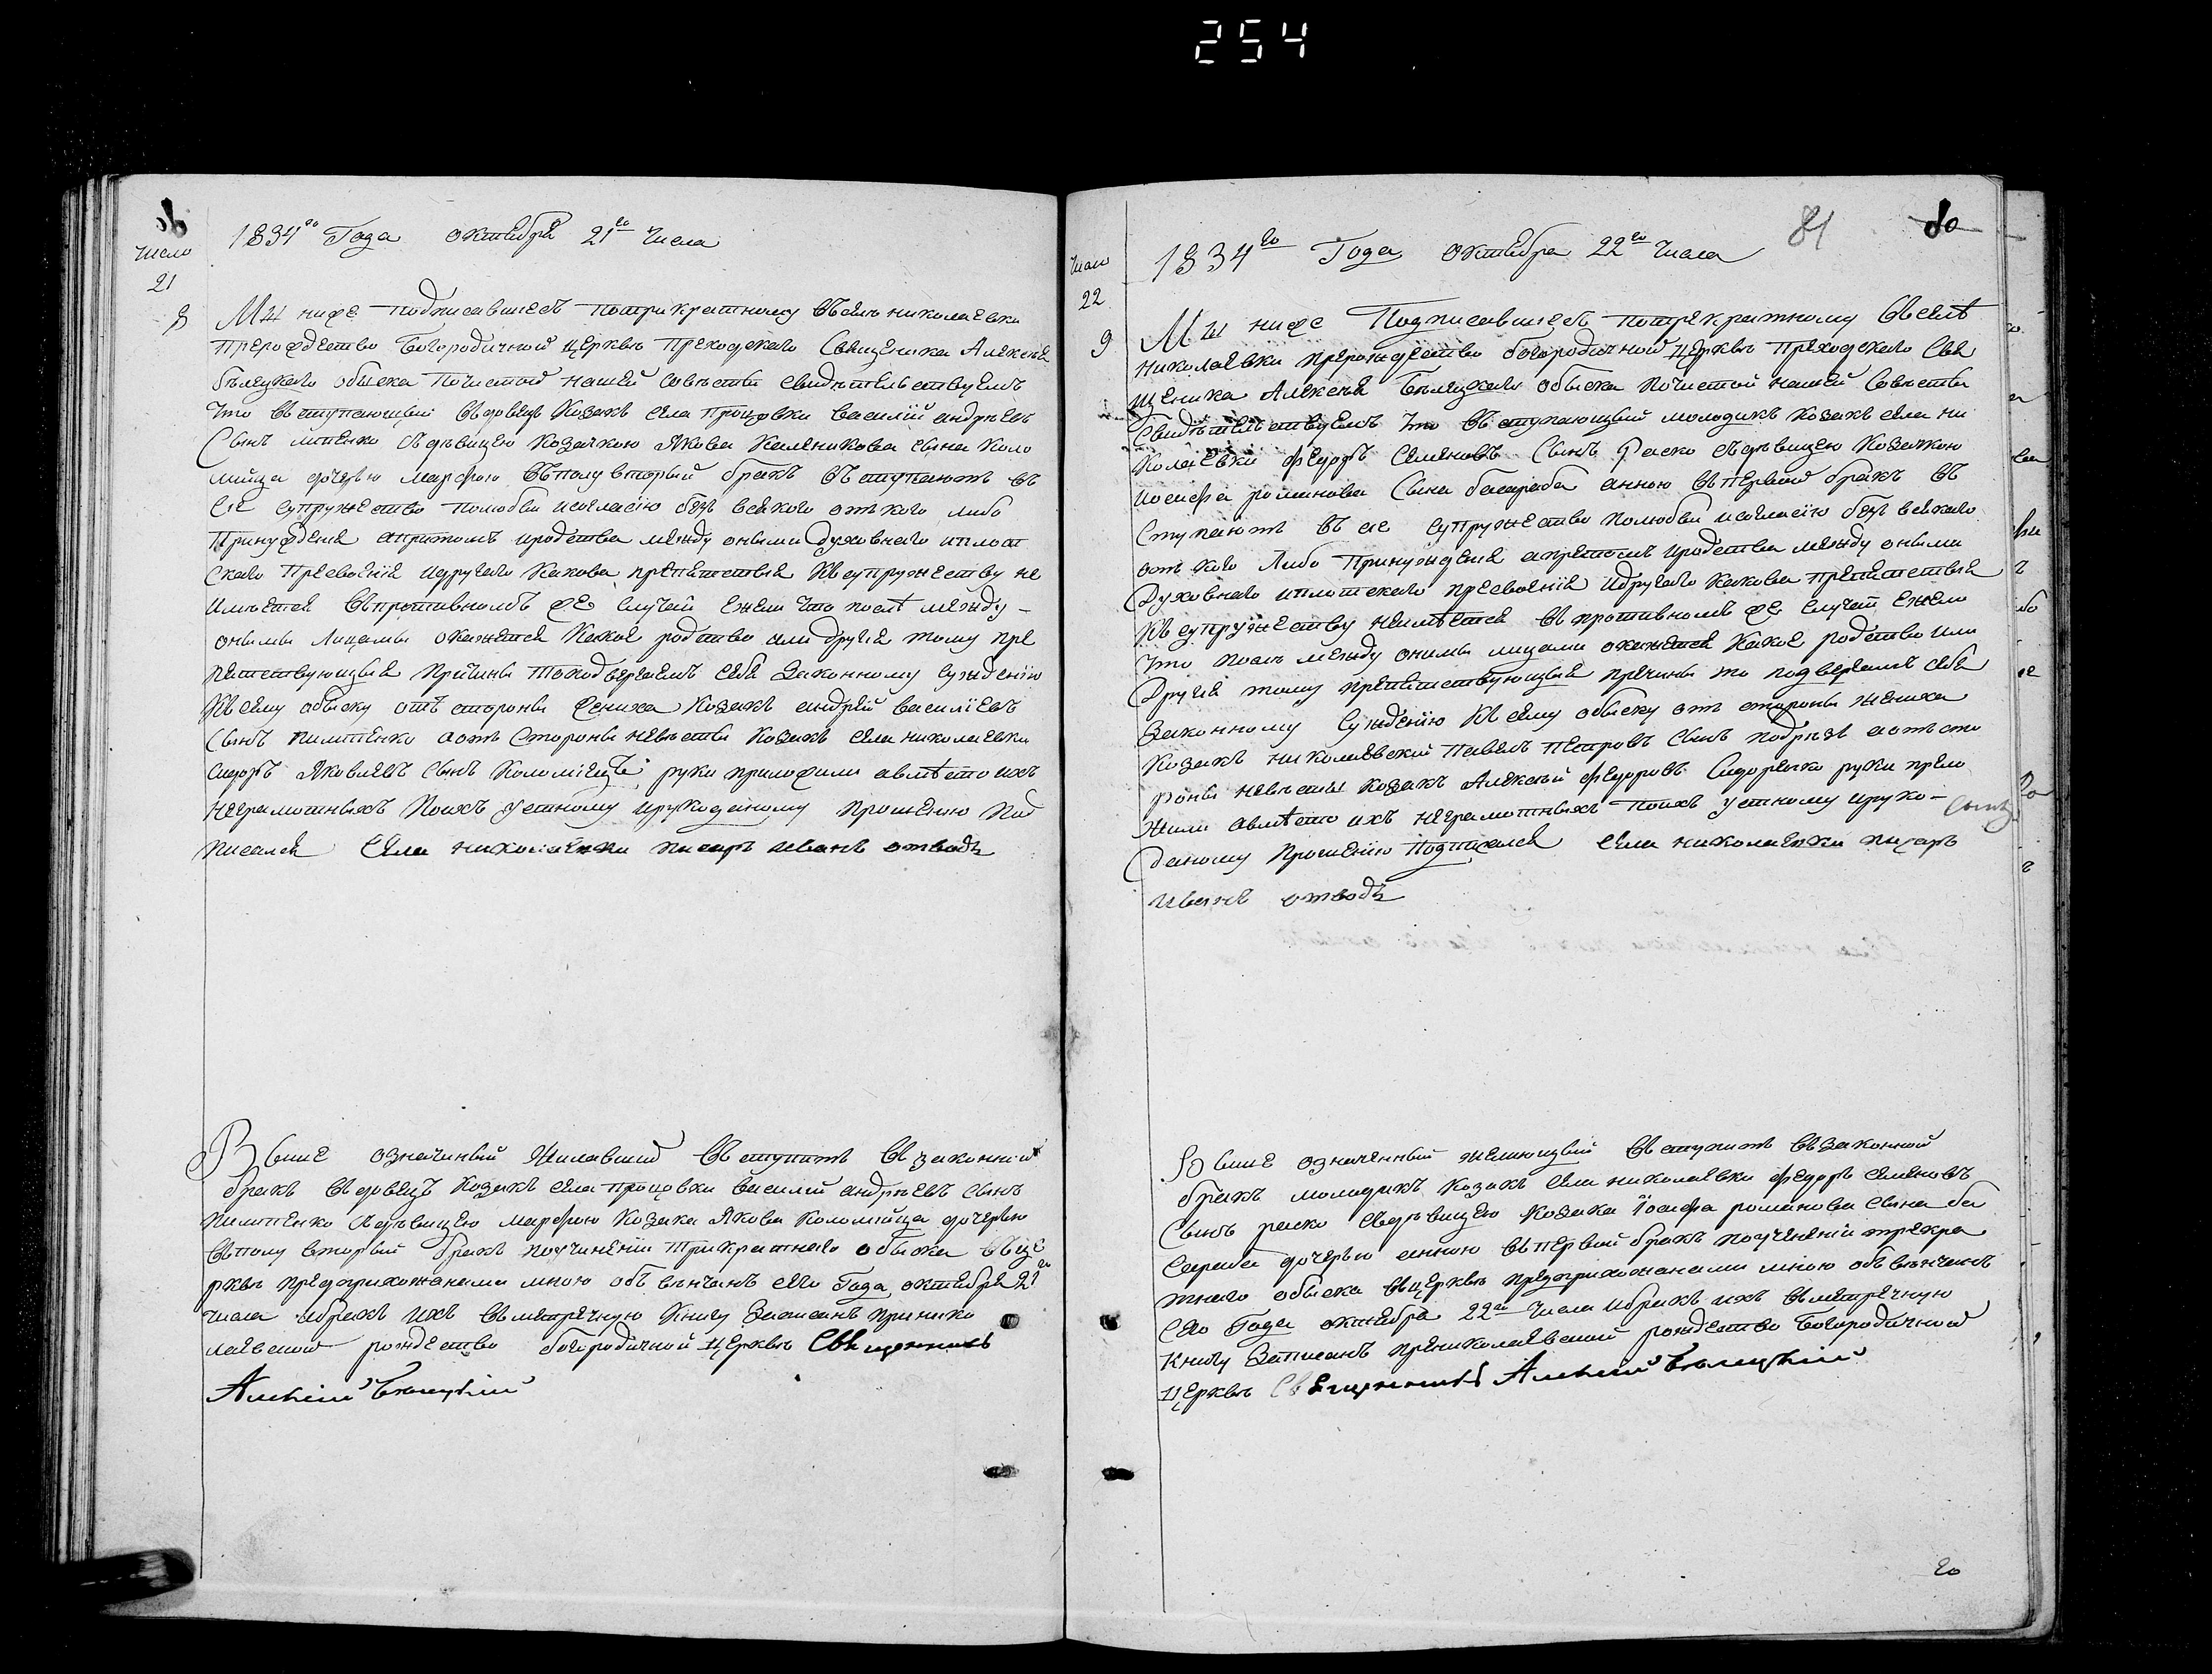 254
Число
21
8
1834го Года октября 21го Числа
Мы ниже подписавшиесъ потрикратному въселъ николаевки
прерождество Богородичной церквъ преходскаго Священика Алексъя
бълецкаго обыска почистой нашей совъсти свидътельствуемъ
что въступающий въдовецъ Козакъ села процовки василій андръевъ
Сынъ съдъвицею козачкою Якова Калениковa сына Коло
мийца дочерью марфою въполувторый бракъ въступаютъ въ
сіе супружество полюбви исогласію безъ всякого откого либо
Принужденя апритомъ иродства между оными духовнаго иплот
скаго пресвоенія идругаго какова препятствія къ супружеству не
имъется въпротивномъ же случаи ежели что послъ между-
онымы лицамы окажется Какое родство или другія тому пре
пятствующыя причины то подвергаемъ себя Законному сужденію
Къ сему обыску отъ стороны жениха Козакъ андрей василіевъ
Сынъ пилипенко аотъ стороны невъсты козакъ села николаевки
сидоръ Яковлевъ сынъ Коломіецъ руки приложили авмъсто ихъ
неграмотныхъ Поихъ устному ирукоданому прошению Под
писался Села николаевки писарь иванъ отводъ
Выше означиный желавший въступить въ законний
бракъ въдовецъ козакъ села процовки василий андръевъ сынъ
пилипенко съдъвицею марфою козака Якова Коломийца дочерью
въполувторый бракъ поучинении трикратнаго обыска въ це
рквъ предприхожанами мною объвънчанъ сего Года октября 21го
числа ибракъ ихъ въметричную Книгу Записанъ принико
лаевской рождество богородичной церквъ Священникъ
Алексій Бълецкій
81
80
Число
22
9
1834го Года октября 22го числа
Мы ниже Подписавшиесъ потрекратному въселъ
николаевки прерождество богородичной церквъ преходского Свя
щеника Алексъя Бълецкаго обыска почистой нашей Совъсты
Свидътельствуемъ что въступающый молодикъ козакъ села ни
колаевки федоръ семеновъ Сынъ Раско съдъвицею Козачкою
иосифа романова Сына басараба анною въпервой бракъ въ
ступаютъ въ сіе супружество полюбви исогласію безъ всякаго
отъ кого Либо Принужденя апретомъ иродства между оными
Духовнаго иплотскаго пресвоенія идругаго какова препятствія
къ супружеству неимъется въпротивномъ же случаи ежели
что послъ между онимы лицами окажется Какое родство или
Другія тому препятствующыя причины то подвергаемъ себя
Законному Сужденію къ сему обыску отъ стороны жениха
Козакъ николаевский павелъ петровъ сынъ аотъ сто
роны невъсты козакъ Алексъй федоровъ Сидоренко руки прело
сынъ
жили авмъсто ихъ неграмотныхъ поихъ устному ируко-
даному Прошению Подписался села николаевки писарь
иванъ отводъ
Выше означенный желающый въступить въ законной
бракъ молодикъ козакъ села николаевки федоръ семеновъ
Сынъ раско съдъвицею козака Іосифа романова сына ба
сараба дочерью анною въпервой бракъ поученений трекра
тнаго обыска въ церквъ предприхожанами мною объвънчанъ
Сего Года октября 22го числа ибракъ ихъ въметречную
книгу Записанъ прениколаевской рождество Богородичной
Церквъ Священникъ Алексій Бълецкій
20